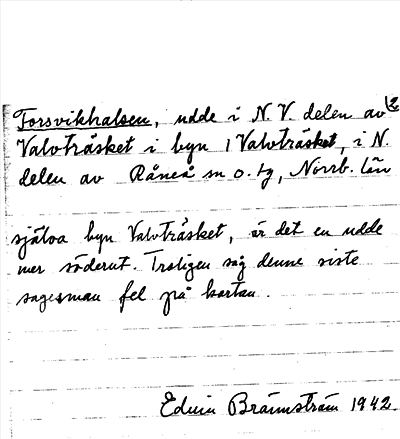 Forsvikhalsen, udde i N.V. delen av 2
Valvträsket i byn 1 Valvträsket, i N.
delen av Råneå sn o. tg, Norrb. län
själva byn Valvträsket, är det en udde
mer söderut. Troligen såg denne siste
sagesman fel på kartan.
Edvin Brännström 1942.